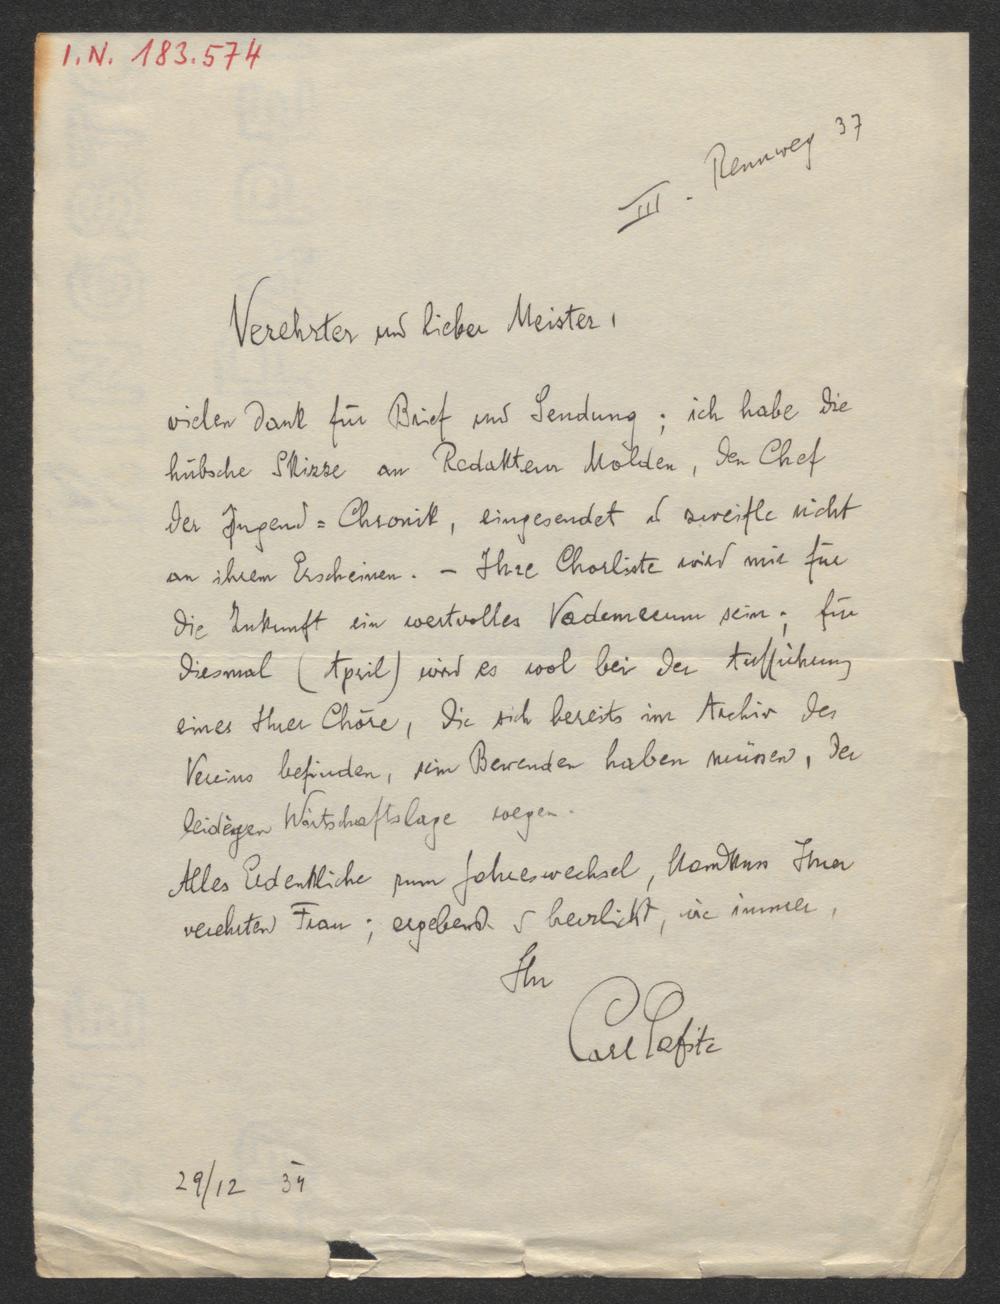 I.N. 183.574
III. Rennweg 37
Verehrter und lieber Meister,
vielen Dank für Brief und Sendung; ich habe die
hübsche Skizze an Redakteur Molden, den Chef
der Jugend=Chronik, eingesendet u zweifle nicht
an ihrem Erscheinen. – Ihre Chorliste wird mir für
die Zukunft ein wertvolles Vademecum sein; für
diesmal (April) wird es wol bei der Aufführung
eines Ihrer Chöre, die sich bereits im Archiv des
Vereins befinden, sein Bewenden haben müssen, der
leidigen Wirtschaftslage wegen.
Alles Erdenkliche zum Jahreswechsel, Handkuss Ihrer
verehrten Frau; ergebenst & herzlichst, wie immer,
Ihr
Carl Lafite
29/12 34